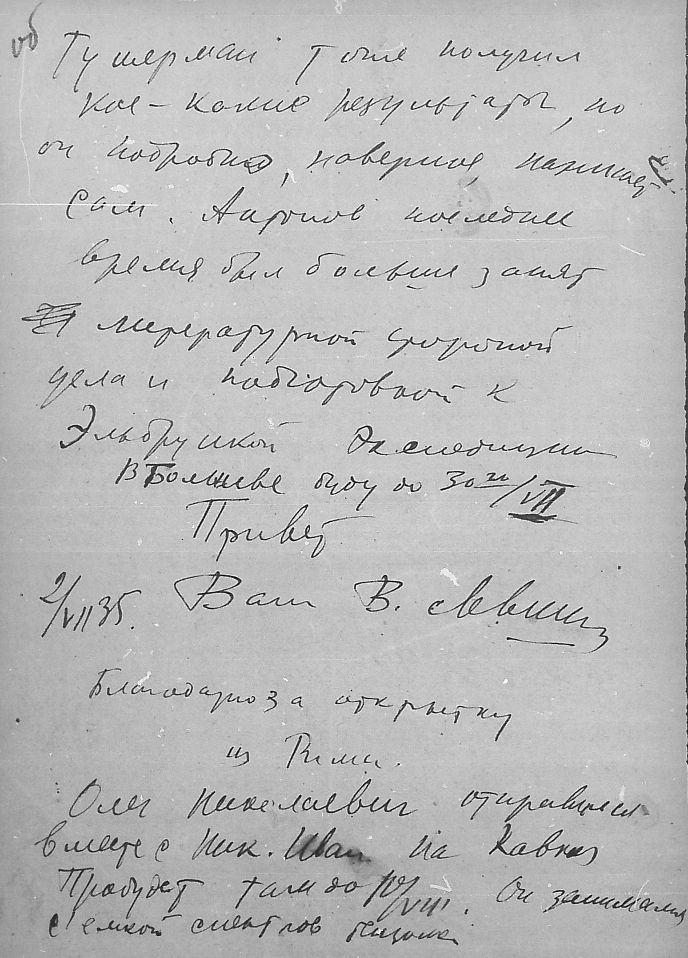 об
Гушерман тоже получил
кое-какие результаты, но
он подробно, наверное, напишет
сам. Антонов последнее
время был больше занят
литературной стороной
дела и подготовкой к
Эльбрусской экспедиции
В Болшеве буду до 30го/VII
Привет
2/VII 35. Ваш В. Левшин
Благодарю за открытку
из Рима.
Олег Николаевич отправился
вместе с Ник. Иван на Кавказ
Пробудет там до 10/VIII. Он занимался
съемкой спектров